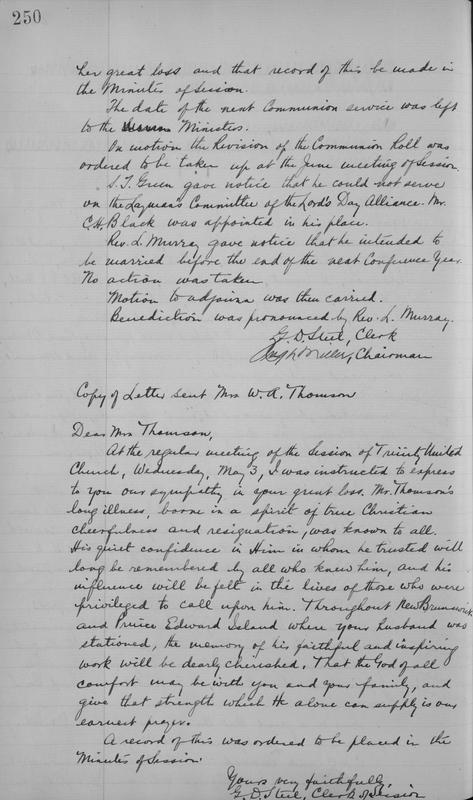 250
her great loss and that record of this be made in
the Minutes of Session.
The date of the next Communion service was left
to the Ministers.
On motion the Revision of the Communion Roll was
ordered to be taken up at the June meeting of Session.
S. T. Green gave notice that he could not serve
on the Layman's Committee of the Lord's Day Alliance. Mr.
C. H. Black was appointed in his place.
Rev. L. Murray gave notice that he intended to
be married before the end of the next Conference Year.
No action was taken
Motion to adjourn was then carried.
Benediction was pronounced by Rev. L. Murray.
G. D. Steel, Clerk
Chairman
Copy of Letter sent Mrs W. A. Thomson
Dear Mrs Thomson,
At the regular meeting of the Session of Trinity United
Church, Wednesday, May 3, I was instructed to express
to you our sympathy in your great loss. Mr. Thomson's
long illness, borne in a spirit of true Christian
cheerfulness and resignation, was known to all.
His quiet confidence in Him in whom he trusted will
long be remembered by all who knew him, and his
influence will be felt in the lives of those who were
privileged to call upon him. Throughout New Brunswick
and Prince Edward Island where your husband was
stationed, the memory of his faithful and inspiring
work will be dearly cherished. That the God of all
comfort may be with you and your family, and
give that strength which He alone can supply is our
earnest prayer.
A record of this was ordered to be placed in the
Minutes of Session.
Yours very faithfully,
G. D. Steel, Clerk of Session